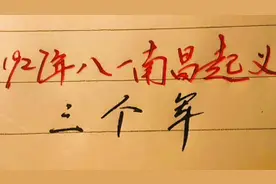 1927年八一南昌起义
三个军